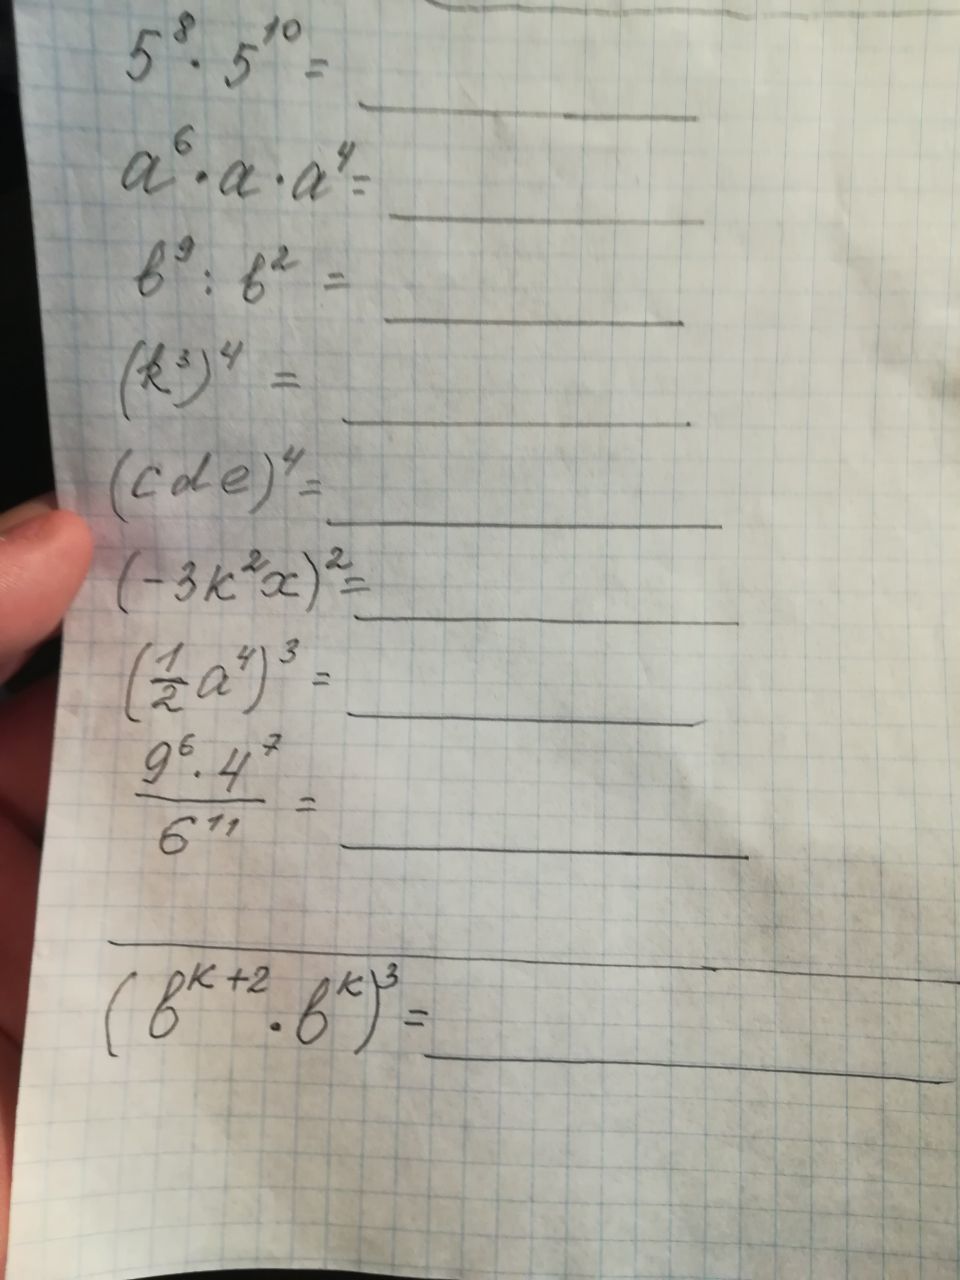 5⁸ · 5¹⁰ =
a⁶ · a · a⁴ =
b⁹ : b² =
(k³)⁴ =
(cde)⁴ =
(-3k²x)² =
(1/2 a⁴)³ =
9⁶ · 4⁷ / 6¹¹ =
(b^(k+2) · b^k)³ =